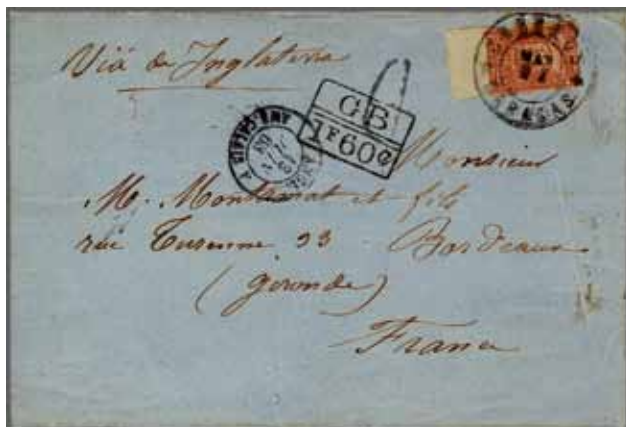 Viâ de Inglaterra
CARACAS
MAY
GB
1F60c
AMB. CALAIS
Monsieur
M. Montserrat et fils
rue Turenne 93 Bordeaux
(gironde)
France